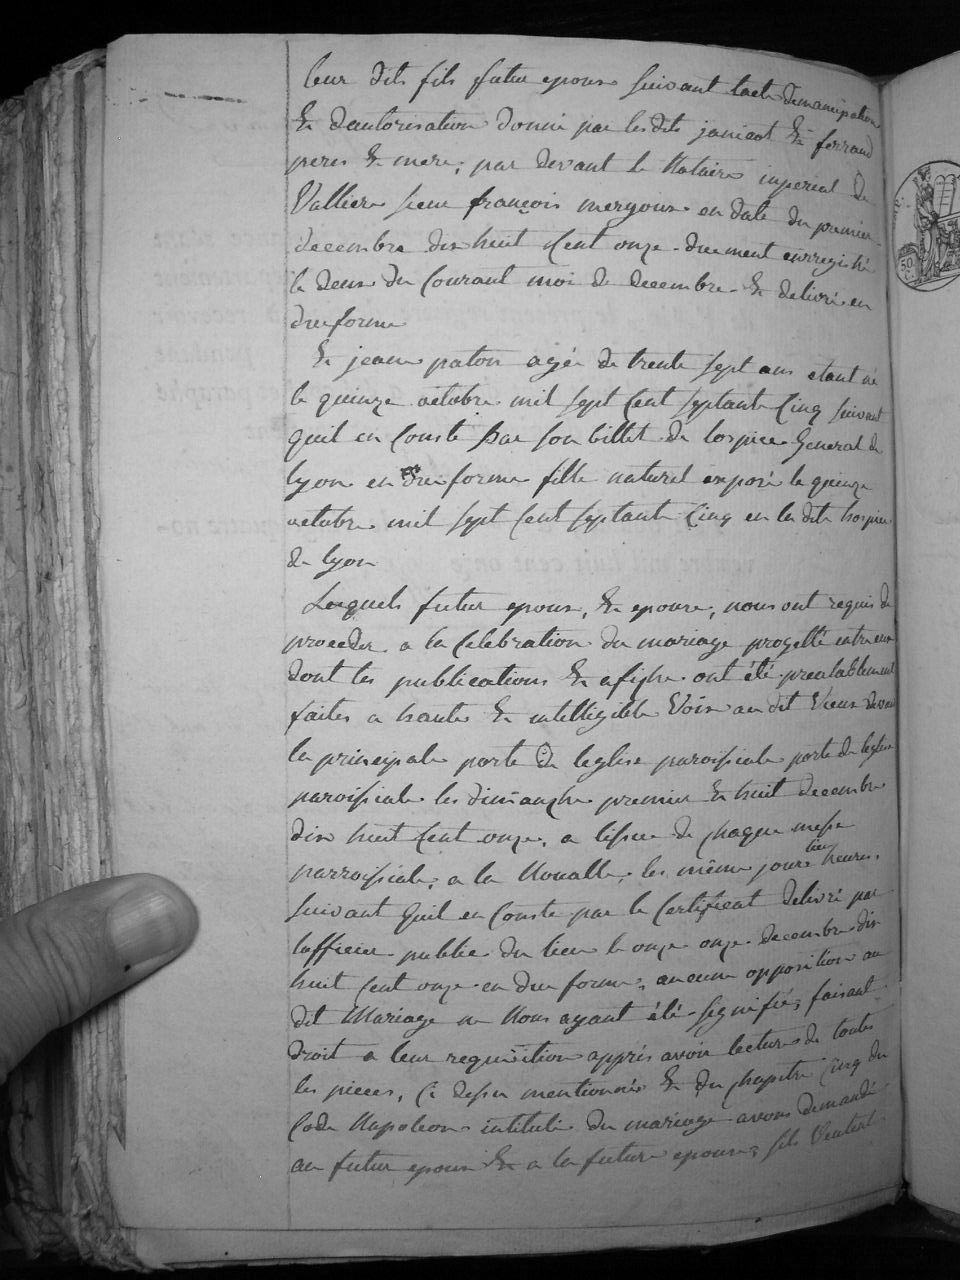 leur dits fils futur epoux suivant lacte demancipation
& dautorisation donné par les dits janicot & ferrand
peres & mere; par devant le Notaire imperial de
Vallier sieur françois mergoux en date du premier
decembre dix huit Cent onze dument enregistré
le deux du Courant moi de decembre & delivré en
due forme
& jeanne paton agée de trente sept ans etant né
le quinze octobre mil sept Cent septante Cinq suivant
quil en Conste par son billet de lospice General de
lyon en due forme fille naturel exposé le quinze
octobre mil sept Cent septante Cinq en la dite hospice
de lyon
Lesquels futur epoux, & epouse, nous ont requis de
proceder a la Celebration du mariage progetté entre eux
dont les publications & afighe ont été prealablement
faites a haute & intelligible Voix au dit Vieux devant
la principale porte de leglise paroissiale porte de leglise
paroissiale les dimanche premier & huit decembre
dix huit Cent onze, a lissue de chaque messe
parroissiale, a la Noualle, les même jours lieu heures,
suivant quil en Conste par le Certificat delivré par
lofficier public du lieu le onze onze decembre dix
huit Cent onze en due forme, aucune opposition au
dit Mariage ne Nous ayant été signifié; faisant
droit a leur requisition apprés avoir lecture de toutes
les pieces, Ci dessu mentionnés & du chapitre Cinq du
Code Napoleon intitulé du mariage avons demandé
au futur epoux & a la future epouse, sils Veulent